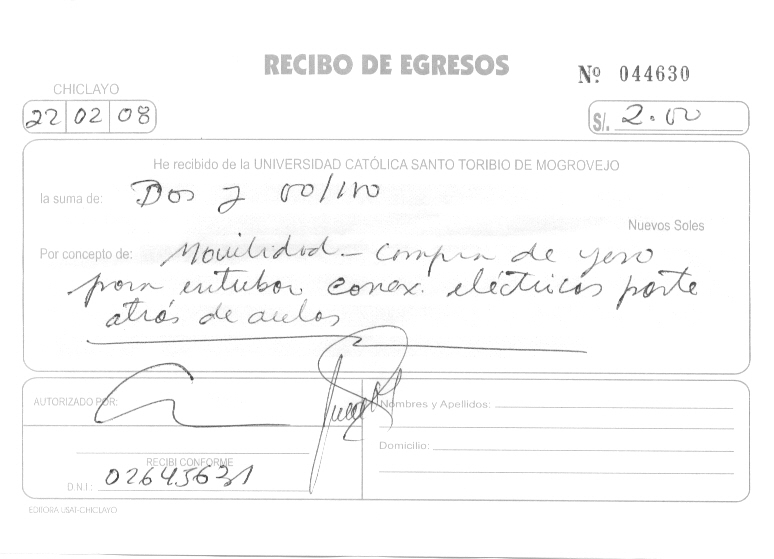 RECIBO DE EGRESOS
Nº 044630
CHICLAYO
22 02 08
S/. 2.00
He recibido de la UNIVERSIDAD CATÓLICA SANTO TORIBIO DE MOGROVEJO
la suma de: Dos y 00/100
Nuevos Soles
Por concepto de: Movilidad - compra de yeso
para entubar conex. eléctricas parte
atrás de aulas
AUTORIZADO POR:
Nombres y Apellidos:
Domicilio:
RECIBI CONFORME
D.N.I.: 02645631
EDITORA USAT-CHICLAYO